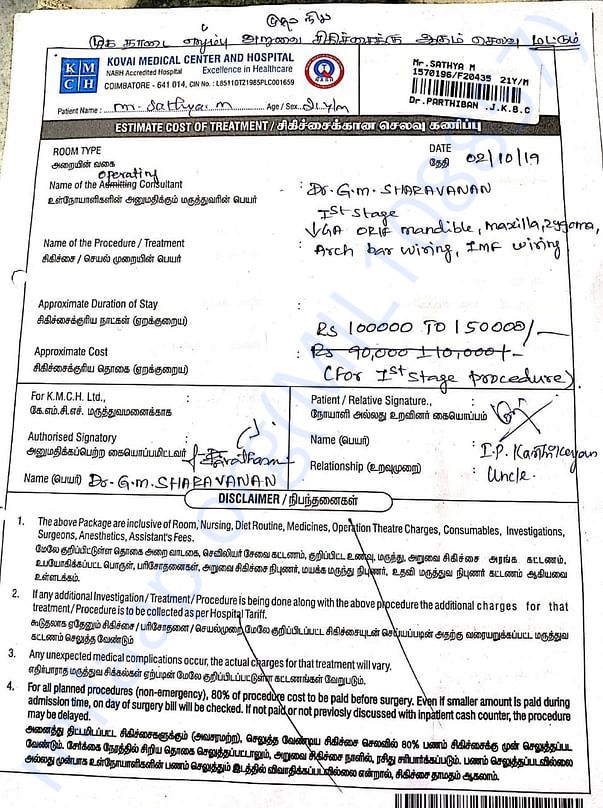 முதல் நிலை
முக தாடை எலும்பு அறுவை சிகிச்சைக்கு ஆகும் செலவு மட்டும்
K M
C H
KOVAI MEDICAL CENTER AND HOSPITAL
NABH Accredited Hospital Excellence in Healthcare
COIMBATORE - 641 014, CIN No.: L85110TZ1985PLC001659
Mr.SATHYA M
1570196/F20435 21Y/M
Dr.PARTHIBAN .J.K.B.C
Patient Name : M. Sathya. M Age / Sex. 21y/M
ESTIMATE COST OF TREATMENT / சிகிச்சைக்கான செலவு கணிப்பு
ROOM TYPE
அறையின் வகை
DATE
தேதி 02/10/19
operating
Name of the Admitting Consultant : Dr. G.M. SHARAVANAN
உள்நோயாளிகளின் அனுமதிக்கும் மருத்துவரின் பெயர்
Ist Stage
↓GA ORIF mandible, Maxilla, zygoma,
Name of the Procedure / Treatment : Arch bar wiring, IMF wiring
சிகிச்சை / செயல் முறையின் பெயர்
Approximate Duration of Stay :
சிகிச்சைக்குரிய நாட்கள் (ஏறக்குறைய)
Rs 100000 TO 150000/-
Approximate Cost : Rs 90,000 110,000/-
சிகிச்சைக்குரிய தொகை (ஏறக்குறைய)
(For Ist stage procedure)
For K.M.C.H. Ltd., :
கே.எம்.சி.எச். மருத்துவமனைக்காக
Patient / Relative Signature., :
நோயாளி அல்லது உறவினர் கையொப்பம்
Authorised Signatory :
அனுமதிக்கப்பெற்ற கையொப்பமிட்டவர்
Name (பெயர்) Dr. G.M. SHARAVANAN
Name (பெயர்) : I.P. Karthikeyan
Relationship (உறவுமுறை) : Uncle.
DISCLAIMER / நிபந்தனைகள்
1. The above Package are inclusive of Room, Nursing, Diet Routine, Medicines, Operation Theatre Charges, Consumables, Investigations,
Surgeons, Anesthetics, Assistant's Fees.
மேலே குறிப்பிட்டுள்ள தொகை அறை வாடகை, செவிலியர் சேவை கட்டணம், குறிப்பிட்ட உணவு, மருத்து, அறுவை சிகிச்சை அரங்க கட்டணம்,
உபயோகிக்கப்பட்ட பொருள், பரிசோதனைகள், அறுவை சிகிச்சை நிபுணர், மயக்க மருந்து நிபுணர், உதவி மருத்துவ நிபுணர் கட்டணம் ஆகியவை
உள்ளடக்கம்.
2. If any additional Investigation / Treatment / Procedure is being done along with the above procedure the additional charges for that
treatment / Procedure is to be collected as per Hospital Tariff.
கூடுதலாக ஏதேனும் சிகிச்சை / பரிசோதனை / செயல்முறை மேலே குறிப்பிடப்பட்ட சிகிச்சையுடன் செய்யப்படின் அதற்கு வரையறுக்கப்பட்ட மருத்துவ
கட்டணம் செலுத்த வேண்டும்
3. Any unexpected medical complications occur, the actual charges for that treatment will vary.
எதிர்பாராத மருத்துவ சிக்கல்கள் ஏற்படின் மேலே குறிப்பிடப்பட்டுள்ள கட்டணங்கள் வேறுபடும்.
4. For all planned procedures (non-emergency), 80% of procedure cost to be paid before surgery. Even if smaller amount is paid during
admission time, on day of surgery bill will be checked. If not paid or not previously discussed with inpatient cash counter, the procedure
may be delayed.
அனைத்து திட்டமிடப்பட்ட சிகிச்சைகளுக்கும் (அவசரமற்ற), செலுத்த வேண்டிய சிகிச்சை செலவில் 80% பணம் சிகிச்சைக்கு முன் செலுத்தப்பட
வேண்டும். சேர்க்கை நேரத்தில் சிறிய தொகை செலுத்தப்பட்டாலும், அறுவை சிகிச்சை நாளில், ரசிது சரிபார்க்கப்படும். பணம் செலுத்தப்படவில்லை
அல்லது முன்பாக உள்நோயாளிகளின் பணம் செலுத்தும் இடத்தில் விவாதிக்கப்படவில்லை என்றால், சிகிச்சை தாமதம் ஆகலாம்.